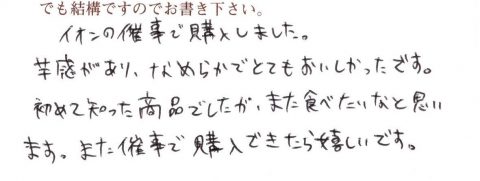 でも結構ですのでお書き下さい。
イオンの催事で購入しました。
芋感があり、なめらかでとてもおいしかったです。
初めて知った商品でしたが、また食べたいなと思い
ます。また催事で購入できたら嬉しいです。